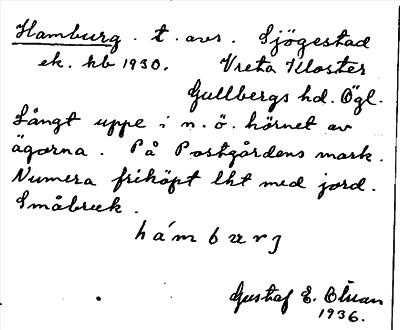 Hamburg. t. avs. Sjögestad
ek. kb 1930. Vreta Kloster
Gullbergs hd. Ögl.
Långt uppe i n. ö. hörnet av
ägorna. På Postgårdens mark.
Numera friköpt lht med jord.
Småbruk.
hámburj
Gustaf E.
1936.